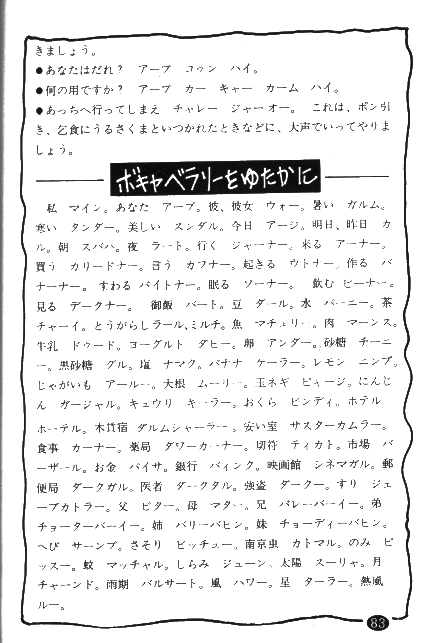 きましょう。
●あなたはだれ？　アープ　コゥン　ハイ。
●何の用ですか？　アープ　カー　キャー　カーム　ハイ。
●あっちへ行ってしまえ　チャレー　ジャーオー。　これは、ポン引
き、乞食にうるさくまといつかれたときなどに、大声でいってやりま
しょう。
ボキャベラリーをゆたかに
私　マイン。あなた　アープ。彼、彼女　ウォー。暑い　ガルム。
寒い　タンダー。美しい　スンダル。今日　アージ。明日、昨日　カ
ル。朝　スバハ。夜　ラート。行く　ジャーナー。来る　アーナー。
買う　カリードナー。言う　カフナー。起きる　ウトナー。作る　バ
ナーナー。すわる　バイトナー。眠る　ソーナー。　飲む　ピーナー。
見る　デークナー。　御飯　バート。豆　ダール。水　パーニー。茶
チャーイ。とうがらし　ラール、ミルチ。魚　マチュリー。肉　マーンス。
牛乳　ドゥード。ヨーグルト　ダヒー。卵　アンダー。砂糖　チーニ
ー。黒砂糖　グル。塩　ナマク。バナナ　ケーラー。レモン　ニンブ。
じゃがいも　アールー。大根　ムーリー。玉ネギ　ピャージ。にんじ
ん　ガージャル。キュウリ　キーラー。おくら　ビンディ。ホテル
ホーテル。木賃宿　ダルムシャーラー。安い室　サスターカムラー。
食事　カーナー。薬局　ダワーカーナー。切符　ティカト。市場　バ
ーザール。お金　パイサ。銀行　バィンク。映画館　シネマガル。郵
便局　ダークガル。医者　ダークタル。強盗　ダークー。すり　ジェ
ーブカトラー。父　ピター。母　マター。兄　バレーバーイー。弟
チョーターバーイー。姉　バリーバヒン。妹　チョーディーバヒン。
へび　サーンプ。さそり　ビッチュー。南京虫　カトマル。のみ　ピ
ッスー。蚊　マッチャル。しらみ　ジューン。太陽　スーリャ。月
チャーンド。雨期　バルサート。風　ハワー。星　ターラー。熱風
ルー。
83